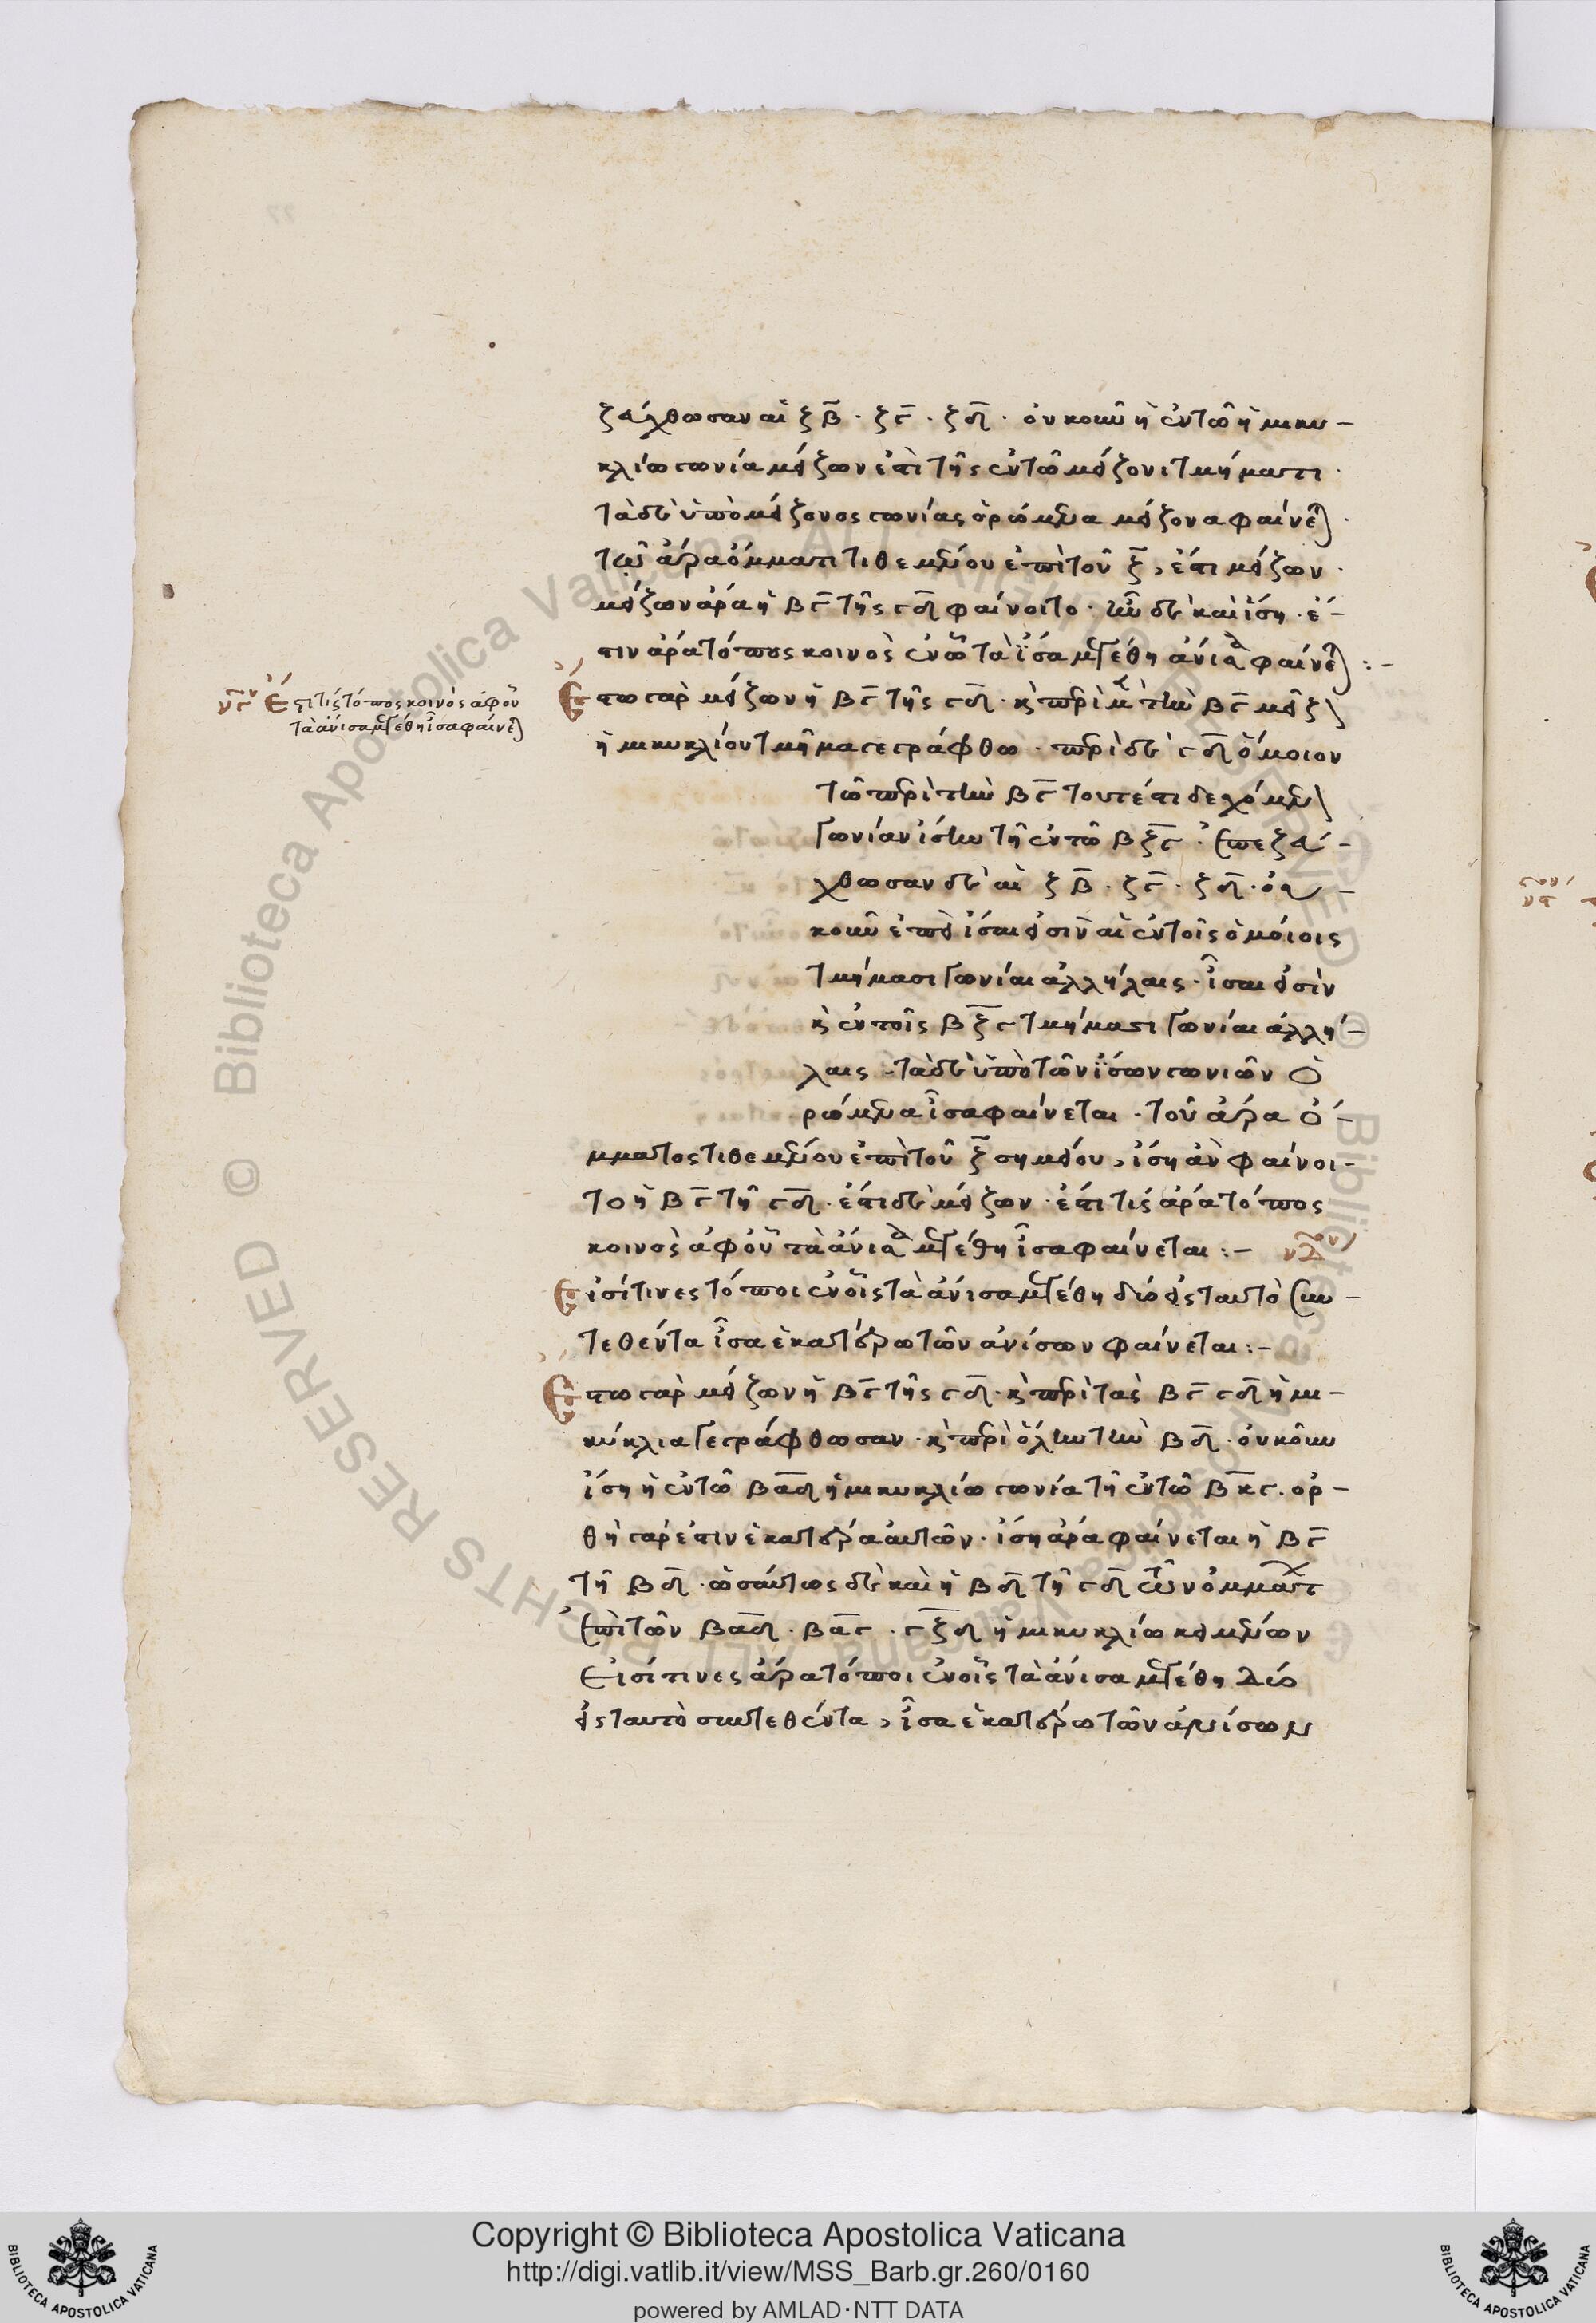 ζεύχθωσαν αἱ ζβ · ζγ · ζδ · οὐκοῦν ἡ ἐν τῶ ἡμικυ-
κλίω γωνία μείζων ἐστὶ τῆς ἐν τῶ μείζονι τμήματι ·
τὰ δὲ ὑπὸ μείζονος γωνίας ὁρώμενα μείζονα φαίνεται ·
τοῦ ἄρα ὄμματι τιθεμένου ἐπὶ τοῦ ζ, ἔστι μείζων ·
μείζων ἄρα ἡ βγ τῆς γδ φαίνοιτο · ἦν δὲ καὶ ἴση · ἔ-
στιν ἄρα τόπος κοινὸς ἐν ῶ τὰ ἴσα μεγέθη ἄνισα φαίνεται :-
νγον Ἔστι τὶς τόπος κοινὸς ἀφ οὗ
τὰ ἄνισα μεγέθη ἴσα φαίνεται
Ἔστω γὰρ μείζων ἡ βγ τῆς γδ · κὶ περὶ μὲν τὴν βγ μεῖζον
ἡμικυκλίου τμῆμα γεγράφθω · περὶ δὲ γδ ὅμοιον
τῶ περὶ τὴν βγ τουτέστι δεχόμενον
γωνίαν ἴσην τῆ ἐν τῶ βζγ · ἐπεζεύ-
χθωσαν δὲ αἱ ζβ · ζγ · ζδ · οὐ-
κοῦν ἐπεὶ ἴσαι εἰσὶν αἱ ἐν τοῖς ὁμοίοις
τμήμασι γωνίαι ἀλλήλαις · ἴσαι εἰσὶν
κὶ ἐν τοῖς βζγ τμήμασι γωνίαι ἀλλή-
λαις · τὰ δὲ ὑπὸ τῶν ἴσων γωνιῶν ὁ
ρώμενα ἴσα φαίνεται · τοῦ ἄρα ὄ-
μματος τιθεμένου ἐπὶ τοῦ ζ σημείου, ἴση ἂν φαίνοι-
το ἡ βγ τῆ γδ · ἔστι δὲ μείζων · ἔστι τίς ἄρα τόπος
κοινὸς ἀφ οὗ τὰ ἄνισα μεγέθη ἴσα φαίνεται :- νδον
Εἰσί τινες τόποι ἐν οἷς τὰ ἄνισα μεγέθη δύο εἰς ταυτὸ συν-
τεθέντα ἴσα ἑκατέρω τῶν ἀνίσων φαίνεται :-
Ἔστω γὰρ μείζων ἡ βγ τῆς γδ · κὶ περὶ τὰς βγ γδ ἡμι-
κύκλια γεγράφθωσαν · κὶ περὶ ὅλην τὴν βδ · οὐκοῦν
ἴση ἡ ἐν τῶ βαδ ἡμικυκλίω γωνία τῆ ἐν τῶ βκγ · ὀρ-
θὴ γάρ ἐστιν ἑκατέρα αὐτῶν · ἴση ἄρα φαίνεται ἡ βγ
τῆ βδ · ὡσαύτως δὲ καὶ ἡ βδ τῆ γδ τῶν ὀμμάτων
ἐπὶ τῶν βαδ · βαγ · γζδ ἡμικυκλίω κειμένων
Εἰσί τινες ἄρα τόποι ἐν οἷς τὰ ἄνισα μεγέθη δύο
εἰς ταυτὸ συντεθέντα, ἴσα ἑκατέρω τῶν ἀνίσων